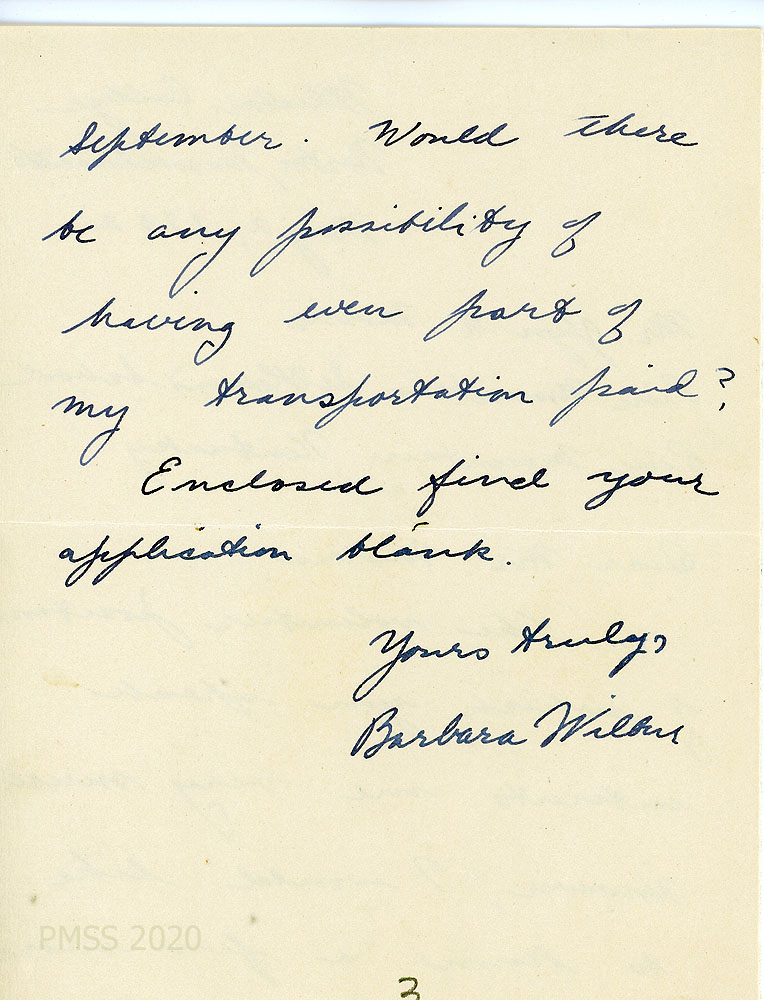 September. Would there
be any possibility of
having even part of
my transportation paid?
Enclosed find your
application blank.
Yours truly,
Barbara Wilbur
PMSS 2020
3